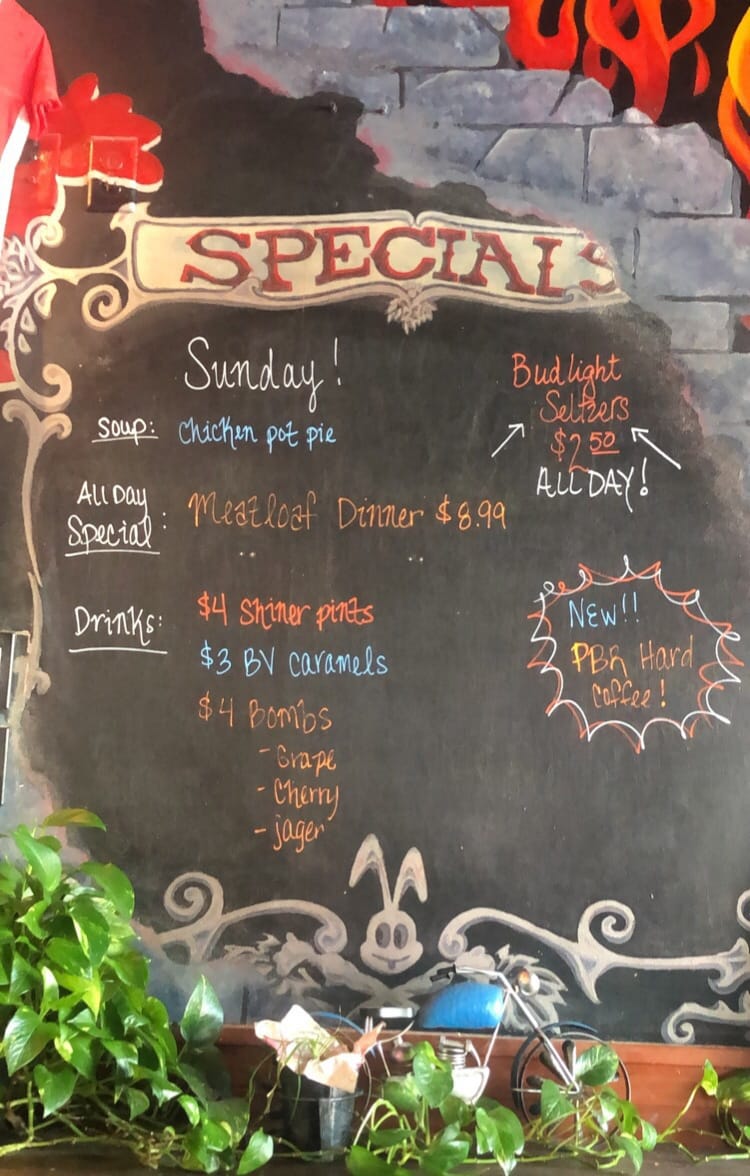 SPECIALS
Sunday!
Soup: Chicken pot pie
All Day
Special: Meatloaf Dinner $8.99
Drinks: $4 Shiner pints
$3 BV caramels
$4 Bombs
- Grape
- Cherry
- jager
Bud light
Seltzers
$2 50
ALL DAY!
NEW!!
PBR Hard
Coffee!